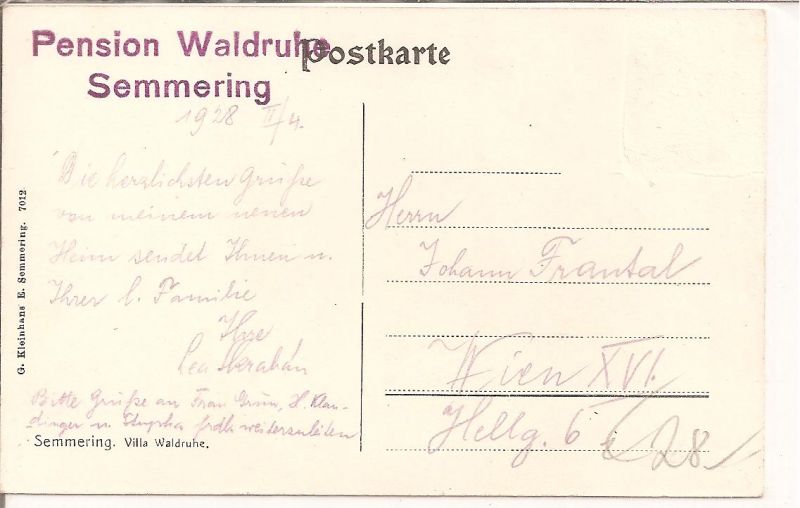 Pension Waldruhe
Semmering
Postkarte
1928 II/4.
Die herzlichsten Grüße
von meinem neuen
Heim sendet Ihnen u.
Ihrer l. Familie
Ihre
Lea
Bitte Grüße an Frau Grün, H. Klau-
dinger u. frdl. weiterzuleiten
Semmering. Villa Waldruhe.
G. Kleinhans E. Semmering. 7012
Herrn
Johann Frantal
Wien XVI.
Hellg. 6
28